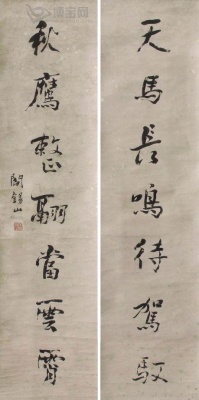 天馬長鳴待駕馭
秋鷹整翮當雲霄
閻錫山